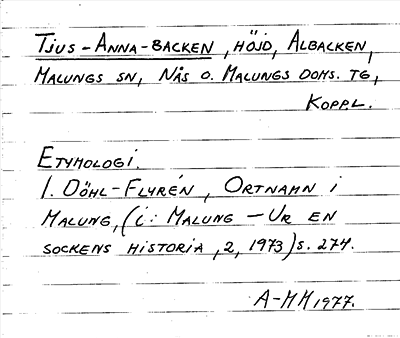 Tjus-Anna-backen, höjd, Albacken,
Malungs sn, Nås o. Malungs doms. tg,
Koppl.
Etymologi.
I. Döhl-Flyrén, Ortnamn i
Malung, (i: Malung - Ur en
sockens historia, 2, 1973) s. 274.
A-MM 1977.